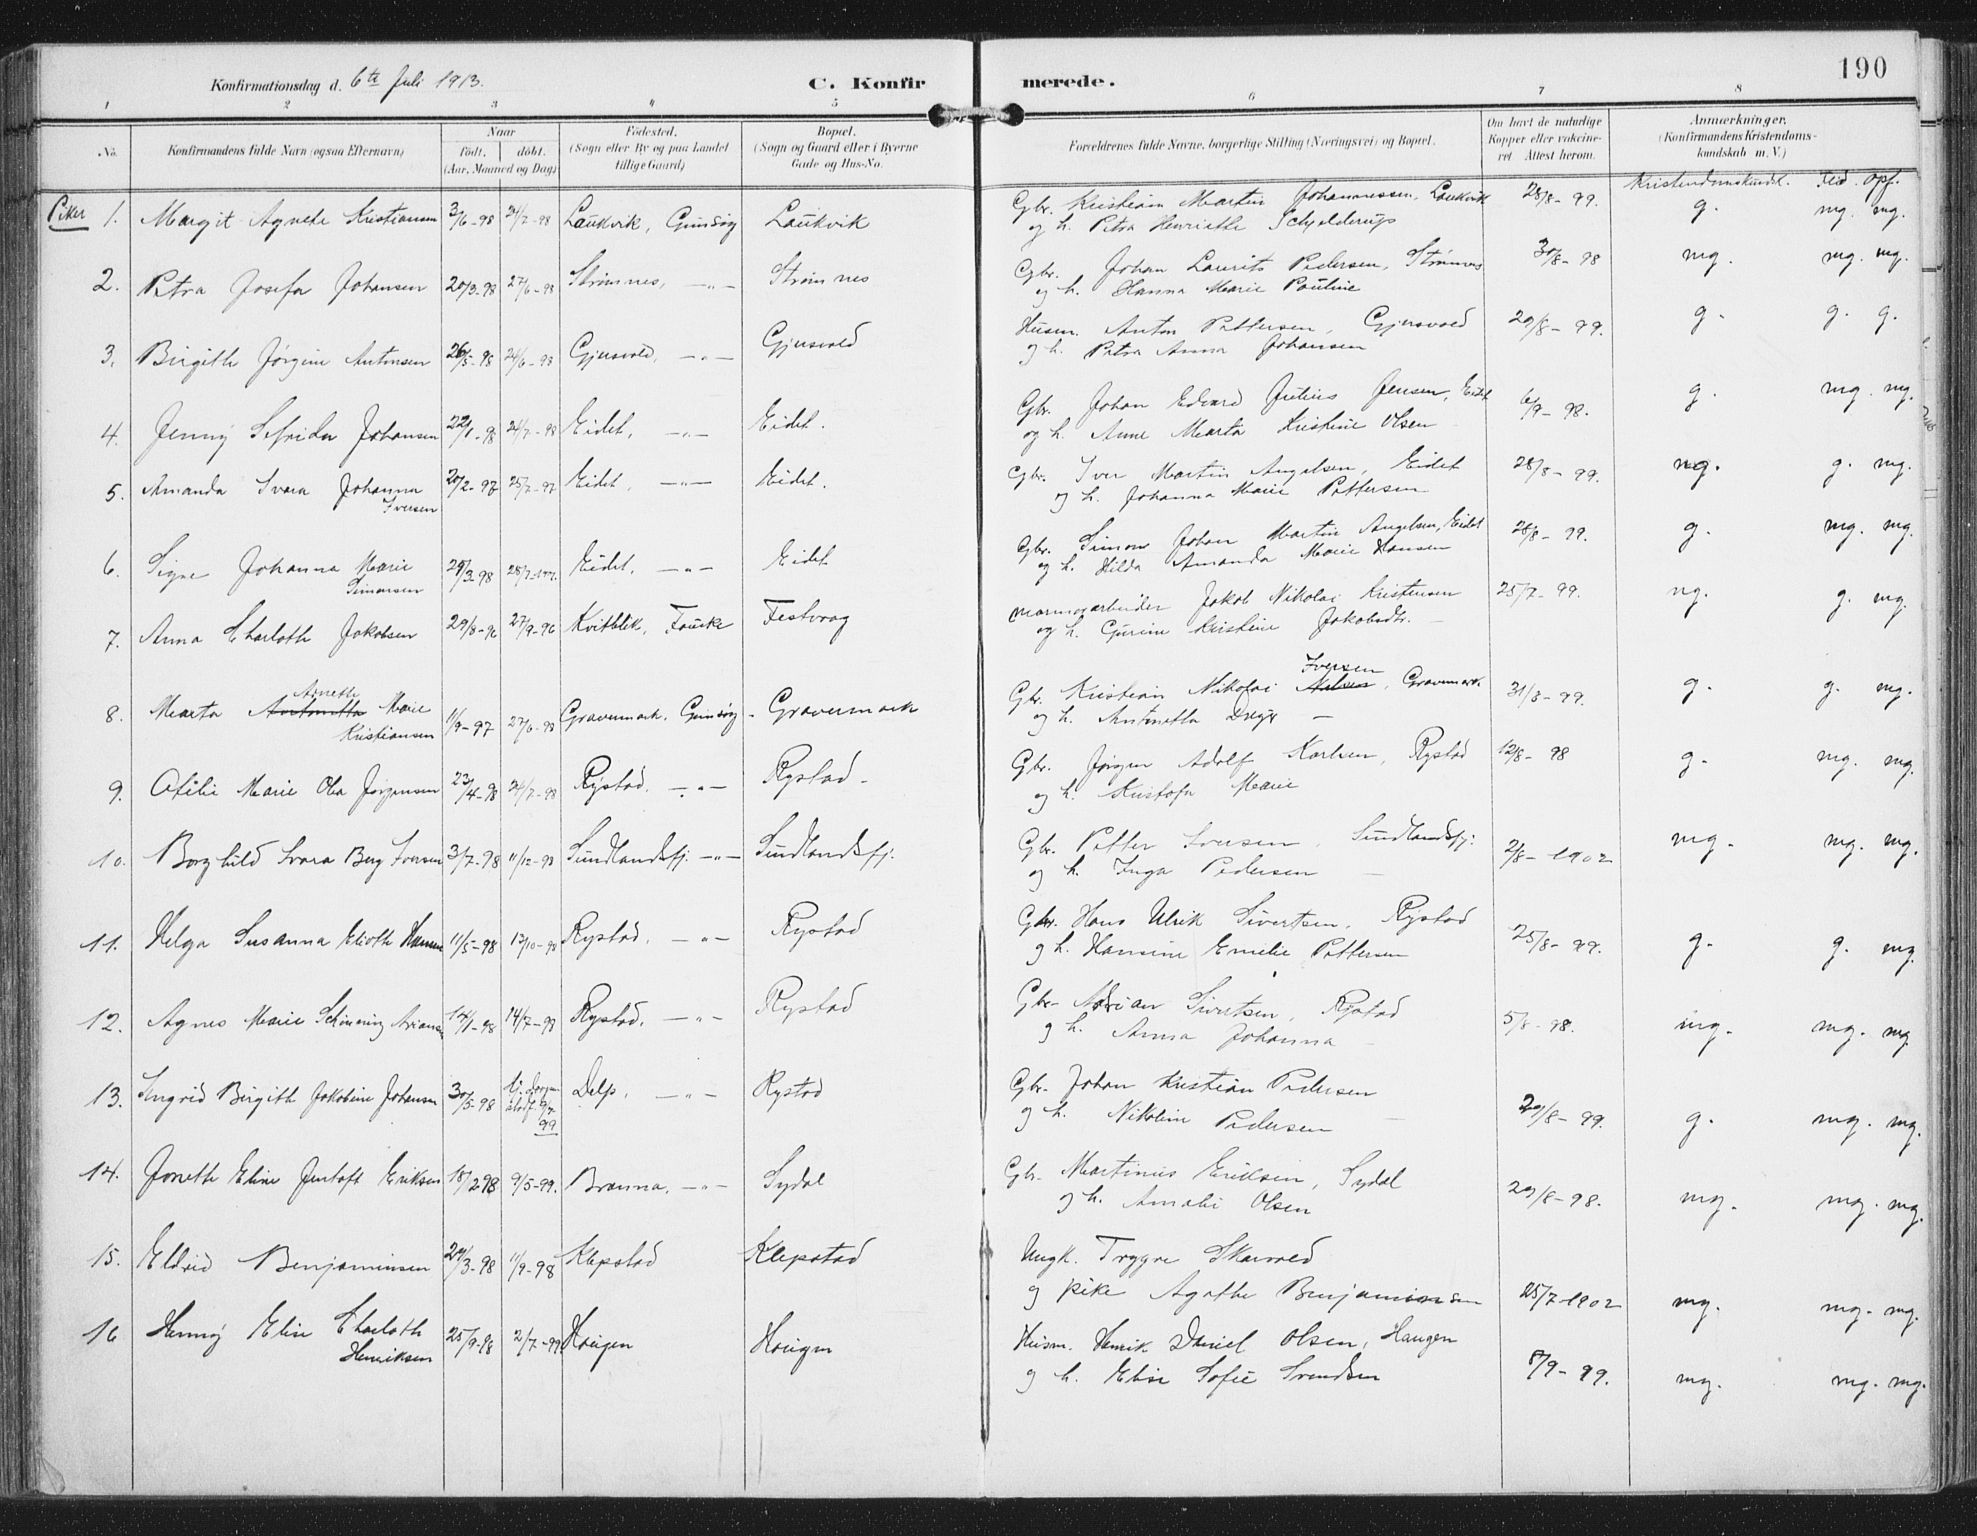 190
Konfirmationsdag d. 6te Juli 1913.
C. Konfirmerede.
1 2 3 4 5 6 7 8
No.
Konfirmandens fulde Navn (ogsaa Efternavn)
Naar
født. døbt.
(Aar, Maaned og Dag)
Fødested.
(Sogn eller By og paa Landet
tillige Gaard)
Bopæl.
(Sogn og Gaard eller i Byerne
Gade og Hus-No.
Forældrenes fulde Navne, borgerlige Stilling (Næringsvei) og Bopæl.
Om havt de naturlige
Kopper eller vakcine-
ret Attest herom.
Anmærkninger.
(Konfirmandens Kristendoms-
kundskab m. V.)
Kristendomskundsk. Flid. Opf.
Piker 1. Margit Agnete Kristiansen 3/6-98 24/7-98 Laukvik, Gimsøy Laukvik Gbr. Kristian Martin Johannessen, Laukvik 28/8-99. g. mg. mg.
og h. Petra Henriette Schjelderup
2. Petra Josefa Johansen 20/3-98 27/6-98 Strømnes, -"- Strømnes Gbr. Johan Laurits Pedersen, Strømnes 30/8-98 mg. mg. mg.
og h. Hanna Marie Pauline
3. Birgith Jørgine Antonsen 26/5-98 24/6-98 Gjusvold, -"- Gjusvold Husm. Anton Pettersen, Gjusvold 29/8-99. g. g. g.
og h. Petra Anna Johansen
4. Jenny Sefrida Johansen 22/1-98 24/7-98 Eidet, -"- Eidet. Gbr. Johan Edvard Julius Jensen, Eidet 6/9-98. g. mg. mg.
og h. Anne Marta Kristine Olsen
5. Amanda Ivara Johanna 25/7-97 Eidet, -"- Eidet. Gbr. Iver Martin Angelsen, Eidet 28/8-99. ng. g. mg.
Iversen og h. Johanna Marie Pettersen
6. Signe Johanna Marie 29/3-98 Eidet, -"- Eidet Gbr. Simon Johan Martin Angelsen, Eidet 28/8-99. g. mg. mg.
Simonsen og h. Hilda Amanda Marie Hansen
7. Anna Charloth Jakobsen 29/8-96 27/9-96 Kvitblik, Fauske Festvaag Marmorarbeider Jakob Nikolai Kristensen 25/7-99. ng. g. mg.
og h. Gurine Kristine Jakobsdtr.
8. Marta Antonetta Arnette Marie 1/9-97 27/6-98 Gravermark, Gimsøy Gravermark Gbr. Kristian Nikolai Iversen, Gravermark 31/8-99. g. g. mg.
Kristiansen og h. Antonetta Dreyer
9. Otilie Marie Ola Jørgensen 23/4-98 24/7-98 Rystad, -"- Rystad Gbr. Jørgen Adolf Karlsen, Rystad 12/8-98 g. mg. mg.
og h. Kristofa Marie
10. Borghild Ivara Berg Iversen 3/7-98 11/12-98 Sundlandsfj. -"- Sundlandsfj. Gbr. Petter Iversen, Sundlandsfj. 2/8-1902 mg. mg. mg.
og h. Inga Pedersen
11. Helga Susanna Elioth Hansen 11/5-98 13/10-98 Rystad, -"- Rystad Gbr. Hans Ulrik Sivertsen, Rystad 25/8-99. g. g. mg.
og h. Hansine Emelie Pettersen
12. Agnes Marie Schinering 14/1-98 14/7-98 Rystad, -"- Rystad Gbr. Adrian Sivertsen, Rystad 5/8-98. mg. mg. mg
og h. Anna Johanna
13. Ingrid Birgith Jakobine Johansen 30/5-98 99 Delp, -"- Rystad Gbr. Johan Kristian Pedersen 29/8-99. g. mg. mg.
og h. Nikoline Pedersen
14. Jonette Eline Jentoft Eriksen 18/2-98 9/5-99. Brænna, -"- Sydal Gbr. Martinus Eriksen, Sydal 29/8-98. mg. mg. mg.
og h. Amalie Olsen
15. Eldrid Benjaminsen 29/3-98 11/9-98 Klepstad Klepstad Ungk. Trygve Skarvold
og pike Agathe Benjaminsen 25/7-1902 mg. mg. mg.
16 Henny Elise Charloth 25/9-98 2/7-99. Haugen Haugen Husm. Henrik Daniel Olsen, Haugen
Henriksen og h. Elise Sofie Svendsen 8/9-99. mg. mg. mg.